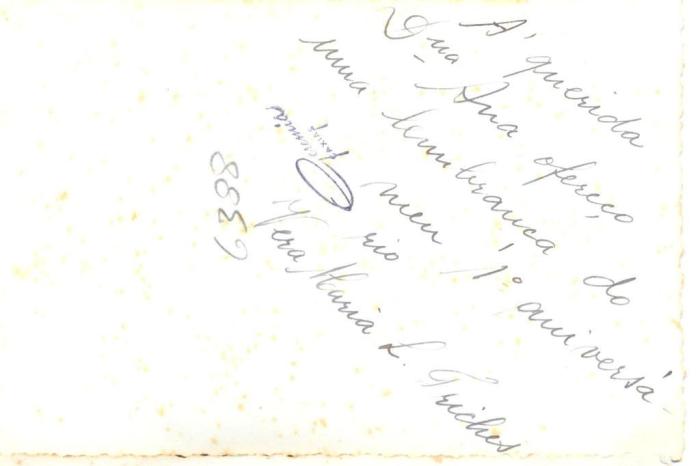 A' querida
Dna Ana ofereço
uma lembrança do
meu 1º aniversá-
rio
Vera Maria L. Triches
6388